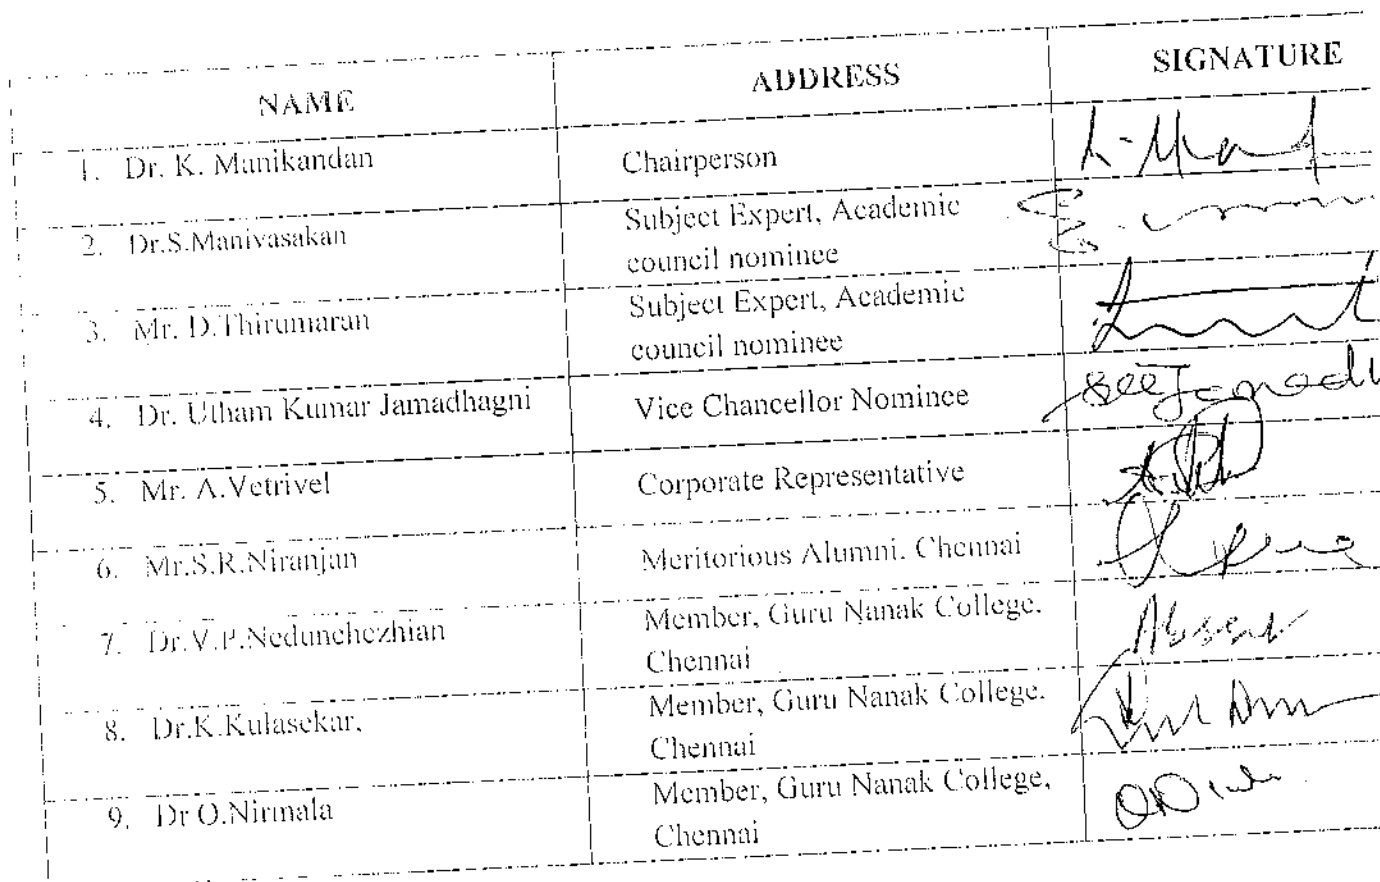 NAME ADDRESS SIGNATURE
1. Dr. K. Manikandan Chairperson
2. Dr.S.Manivasakan Subject Expert, Academic
council nominee
3. Mr. D.Thirumaran Subject Expert, Academic
council nominee
4. Dr. Utham Kumar Jamadhagni Vice Chancellor Nominee
5. Mr. A.Vetrivel Corporate Representative
6. Mr.S.R.Niranjan Meritorious Alumni. Chennai
7. Dr.V.P.Nedunchezhian Member, Guru Nanak College. Absent
Chennai
8. Dr.K.Kulasekar, Member, Guru Nanak College.
Chennai
9. Dr O.Nirmala Member, Guru Nanak College,
Chennai